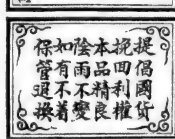 提倡國貨
挽回利權
本品精良
陰雨不變
如有不着
保管退換